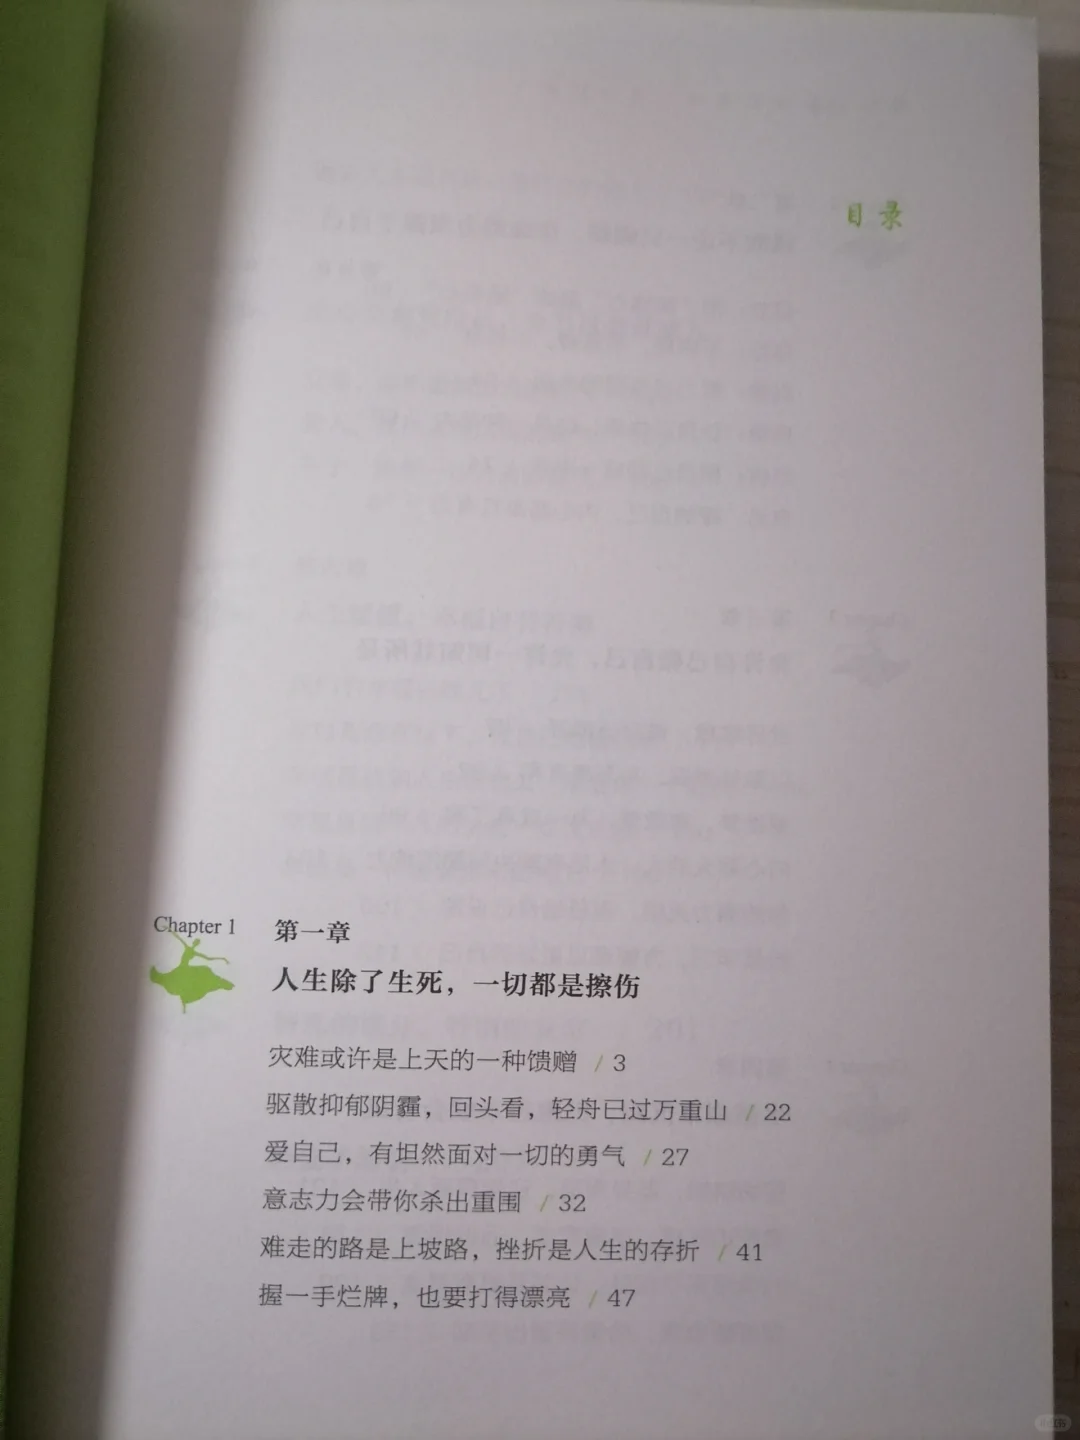 目录
Chapter 1
第一章
人生除了生死，一切都是擦伤
灾难或许是上天的一种馈赠 / 3
驱散抑郁阴霾，回头看，轻舟已过万重山 / 22
爱自己，有坦然面对一切的勇气 / 27
意志力会带你杀出重围 / 32
难走的路是上坡路，挫折是人生的存折 / 41
握一手烂牌，也要打得漂亮 / 47